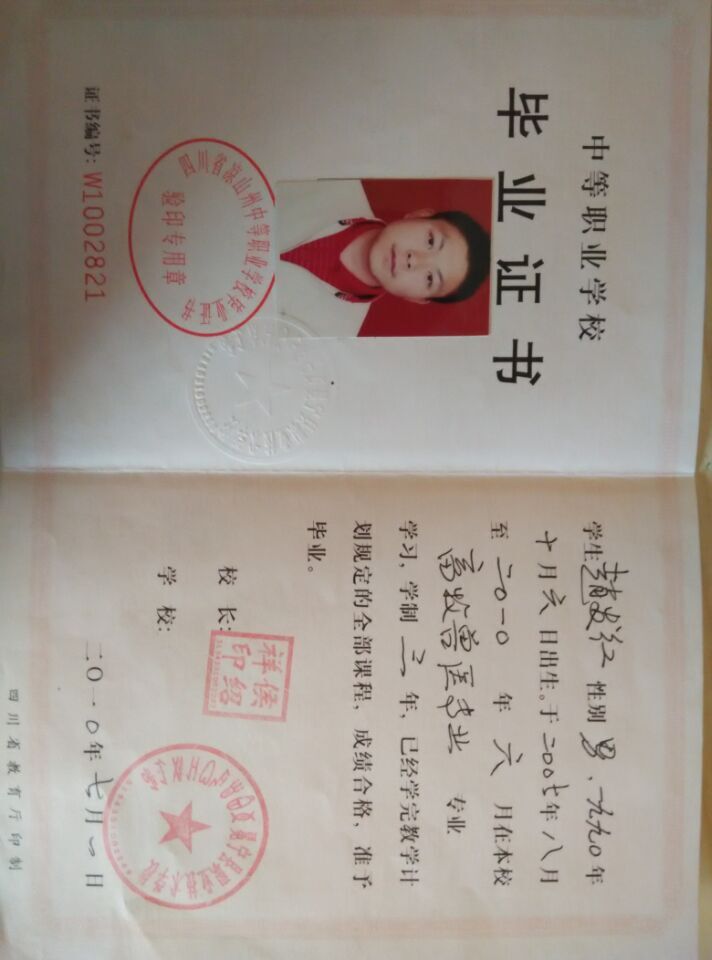 中等职业学校
毕业证书
四川省凉山州中等职业学校毕业证书
验印专用章
证书编号: W1002821
学生 赵发红 性别 男、一九九〇年
十月六日出生。于二〇〇七年八月
至二〇一〇年六月在本校
畜牧兽医专业 专业
学习, 学制 三 年, 已经学完教学计
划规定的全部课程, 成绩合格, 准予
毕业。
校长:
侯绍祥印
学校:
二〇一〇年七月一日
四川省教育厅印制